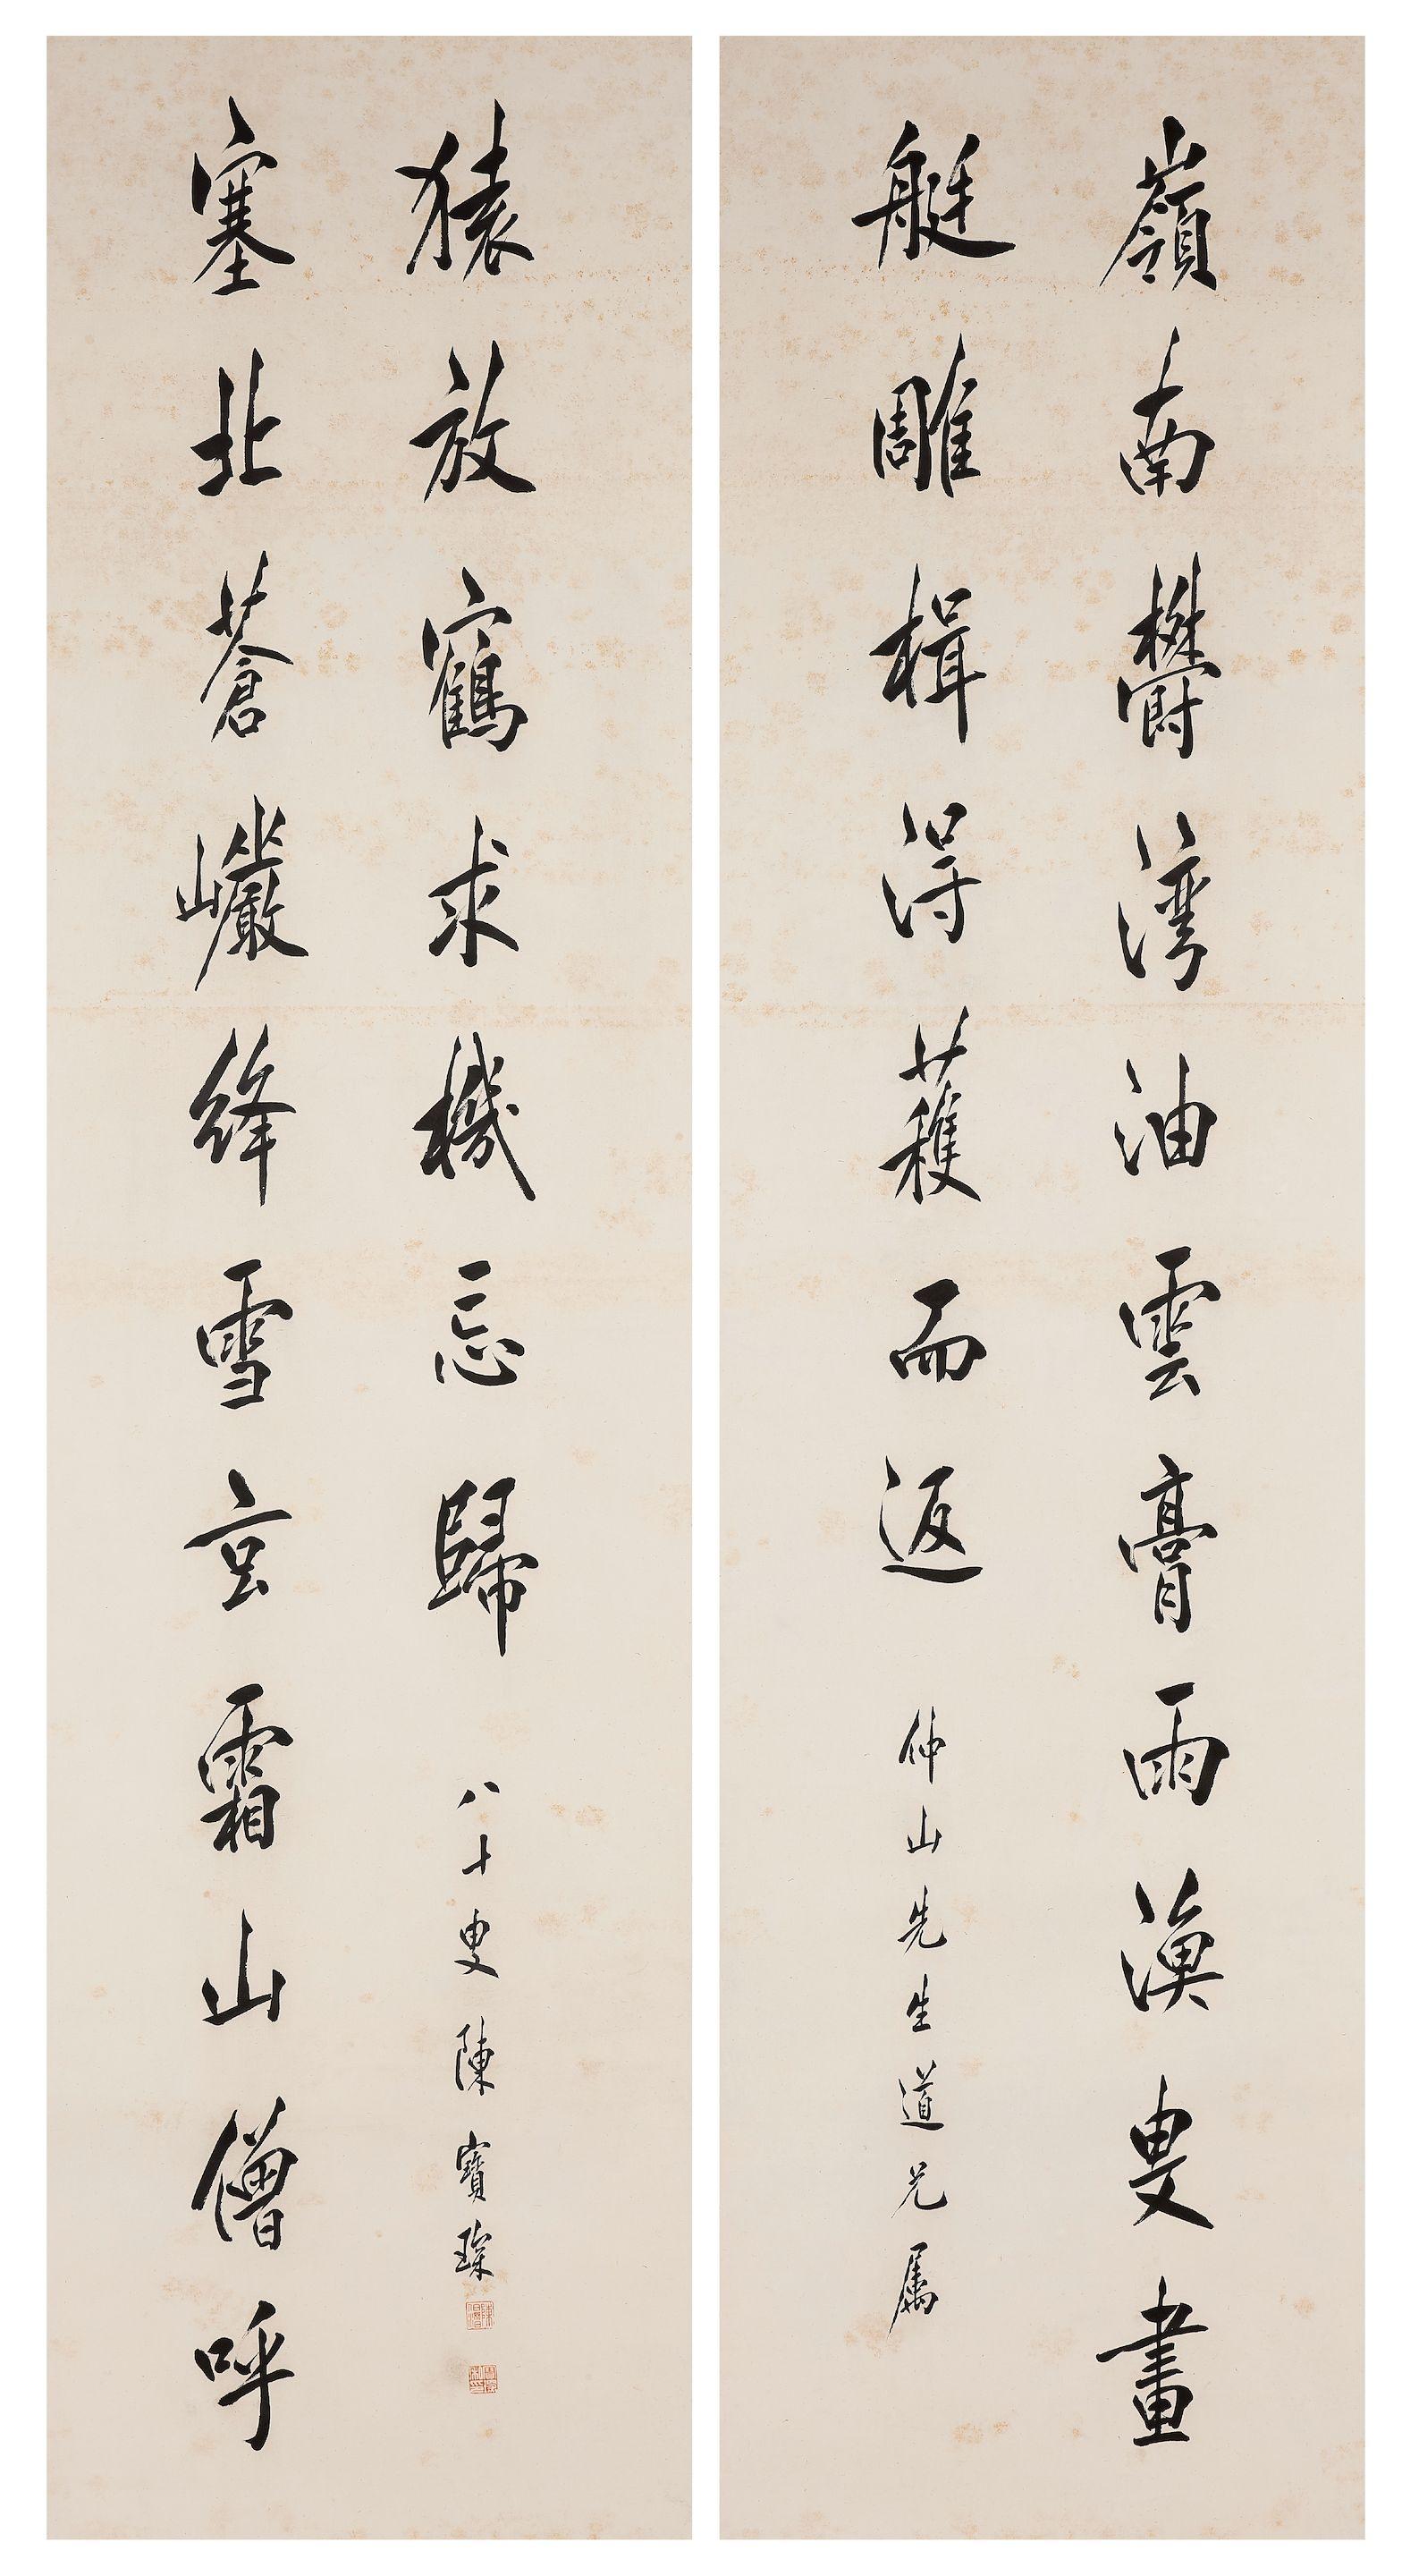 嶺南欝湾油雲膏雨漁叟畫
艇雕楫得穫而返
仲山先生道兄属
塞北蒼巖絳雪玄霜山僧呼
猿放鶴求機忘歸
八十叟陳寶琛